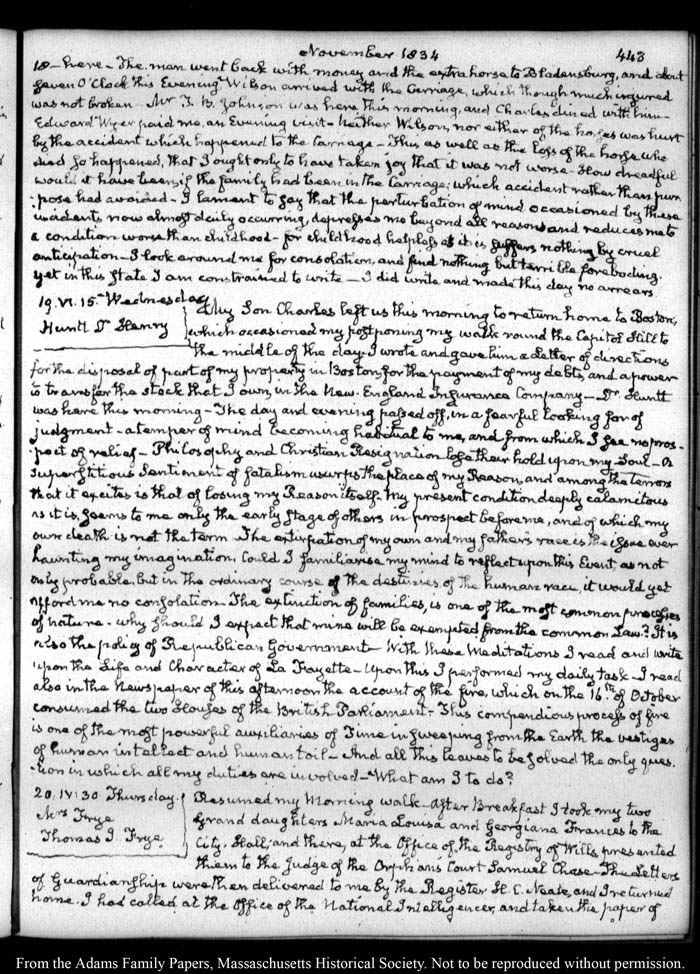 November 1834
443
18— here— The man went back with money and the extra horse to Bladensburg, and about
seven O'Clock this Evening Wilson arrived with the Carriage, which though much injured
was not broken— Mr J. B. Johnson was here this morning, and Charles dined with him—
Edward Wyer paid me, an Evening visit— Neither Wilson, nor either of the horses was hurt
by the accident which happened to the Carriage— This as well as the loss of the horse who
died so happened, that I ought only to have taken joy that it was not worse— How dreadful
would it have been, if the family had been in the Carriage; which accident rather than pur
:pose had avoided— I lament to say that the perturbation of mind occasioned by these
incidents, now almost daily occurring, depresses me beyond all reason and reduces me to
a condition worse than childhood— for childhood helpless as it is suffers nothing by cruel
anticipation— I look around me for consolation, and find nothing but terrible foreboding.
Yet in this State I am constrained to write— I did write and made this day no arrears
19. VI. 15. Wednesday
Huntt Dr Henry
My Son Charles left us this morning to return home to Boston,
which occasioned my postponing my walk round the Capitol Hill to
the middle of the day. I wrote and gave him a Letter of directions
for the disposal of part of my property in Boston, for the payment of my debts, and a power
to transfer the stock that I own, in the New-England Insurance Company— Dr. Huntt
was here this morning— The day and evening passed off, in a fearful looking for of
judgment— a temper of mind becoming habitual to me, and from which I see no pros-
:pect of relief— Philosophy and Christian Resignation lose their hold upon my Soul— A
superstitious Sentiment of fatalism usurps the place of my Reason, and among the terrors
that it excites is that of losing my Reason itself. My present condition deeply calamitous
as it is, seems to me only the early stage of others in prospect before me, and of which my
own death is not the term. The extirpation of my own and my father's race is the issue ever
haunting my imagination. Could I familiarise my mind to reflect upon this Event, as not
only probable, but in the ordinary course of the destinies of the human race, it would yet
afford me no consolation— The extinction of families, is one of the most common processes
of nature— why should I expect that mine will be exempted from the common Law? It is
also the policy of Republican Government— With these Meditations I read and write
upon the Life and Character of La Fayette— Upon this I performed my daily task— I read
also in the Newspaper of this afternoon the account of the fire, which on the 16th. of October
consumed the two Houses of the British Parliament— This compendious process of fire
is one of the most powerful auxiliaries of Time in sweeping from the Earth the vestiges
of human intellect and human toil— And all this leaves to be solved the only ques-
:tion in which all my duties are involved— What am I to do?
20. IV: 30. Thursday.
Mrs Frye
Thomas J. Frye
Resumed my Morning walk— After Breakfast I took my two
Grand daughters Maria Louisa and Georgiana Frances to the
City-Hall; and there, at the Office of the Registry of Wills, presented
them to the Judge of the Orphan's Court Samuel Chase— The Letters
of Guardianship were then delivered to me by the Register H. C. Neale, and I returned
home. I had called at the Office of the National Intelligencer, and taken the paper of
From the Adams Family Papers, Massachusetts Historical Society. Not to be reproduced without permission.